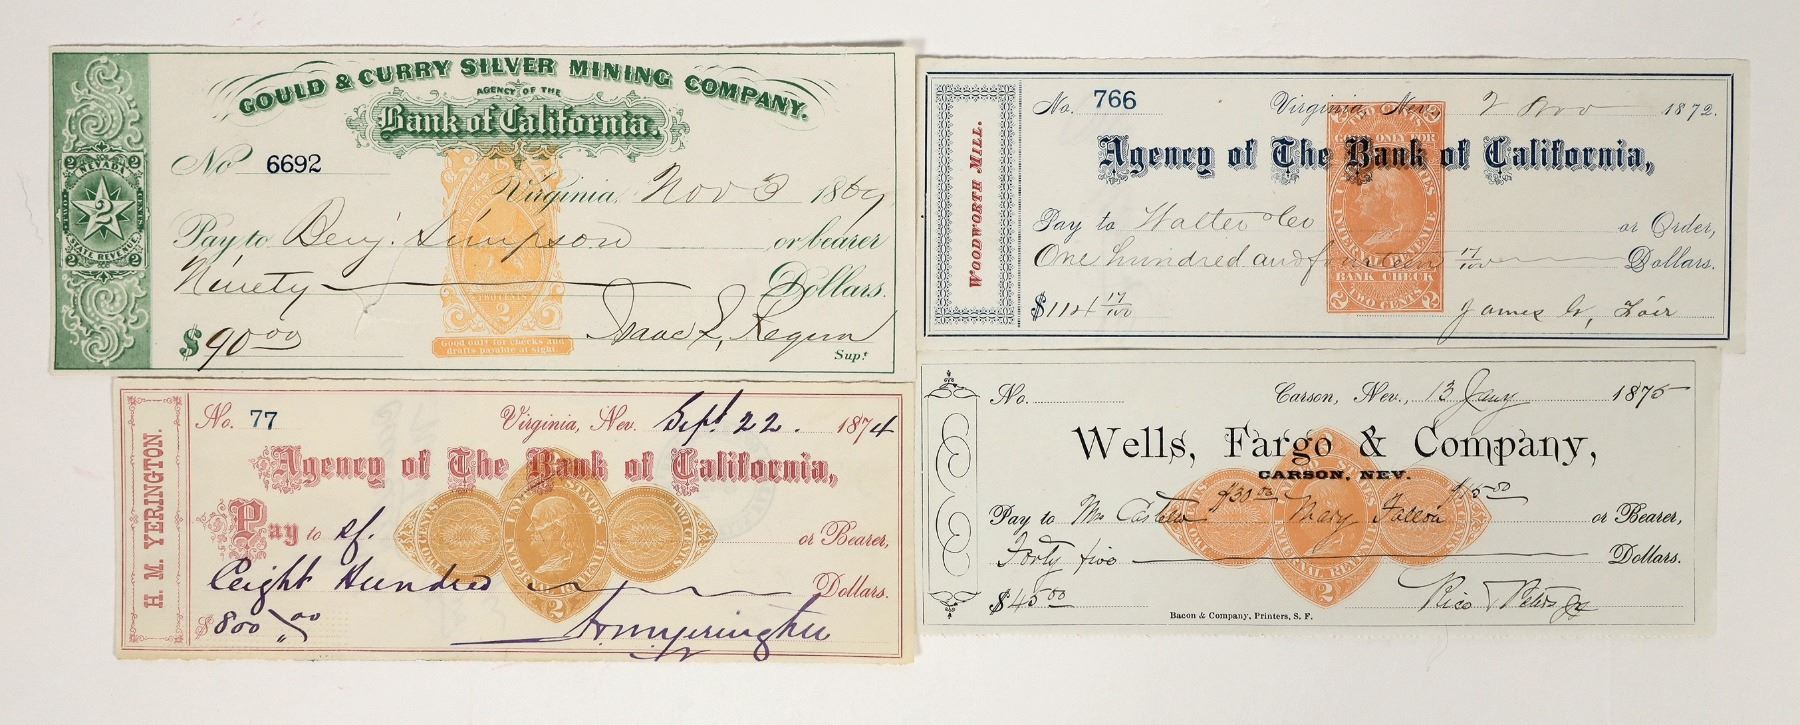 GOULD & CURRY SILVER MINING COMPANY.
AGENCY OF THE
Bank of California.
No 6692
Virginia, Nov 3 1869
Pay to Benj. Simpson or bearer
Ninety Dollars.
$90.00
Supt.
Good only for checks and
drafts payable at sight.
TWO CENTS
2 NEVADA 2
2
TWO CENTS
2 STATE REVENUE 2
WOODWORTH MILL.
No. 766 Virginia, Nev. 2 Nov 1872.
Agency of The Bank of California,
Pay to Walter & Co or Order,
One hundred and fourteen 17/100 Dollars.
$114 17/100
James G. Fair
2 TWO CENTS 2
GOOD ONLY FOR
UNITED STATES
INTERNAL REVENUE
BANK CHECK
2 TWO CENTS 2
H. M. YERINGTON.
No. 77 Virginia, Nev. Sept. 22. 1874
Agency of The Bank of California,
Pay to Sf. or Bearer,
Eight Hundred Dollars.
$800 00/00
H M Yerington
UNITED STATES
INTERNAL REVENUE
TWO CENTS
2
No. Carson, Nev., 13 Jany 1875
Wells, Fargo & Company,
CARSON, NEV.
$30.00 $15.00
Pay to Mrs Mary or Bearer,
Forty five Dollars.
$45.00
INTERNAL REVENUE
2
Bacon & Company, Printers, S. F.